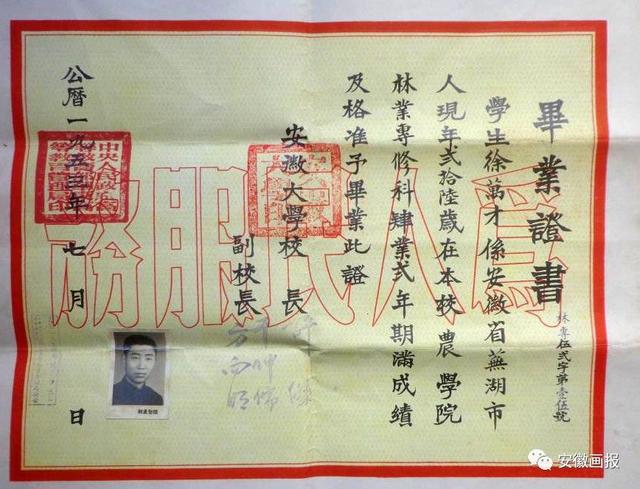 畢業證書
林專伍弍字第壹伍號
學生徐萬才係安徽省蕪湖市
人現年弍拾陸歲在本校農學院
林業專修科肄業弍年期滿成績
及格准予畢業此證
安徽大學校長
副校長
公曆一九五三年七月 日
為人民服務
安徽画报